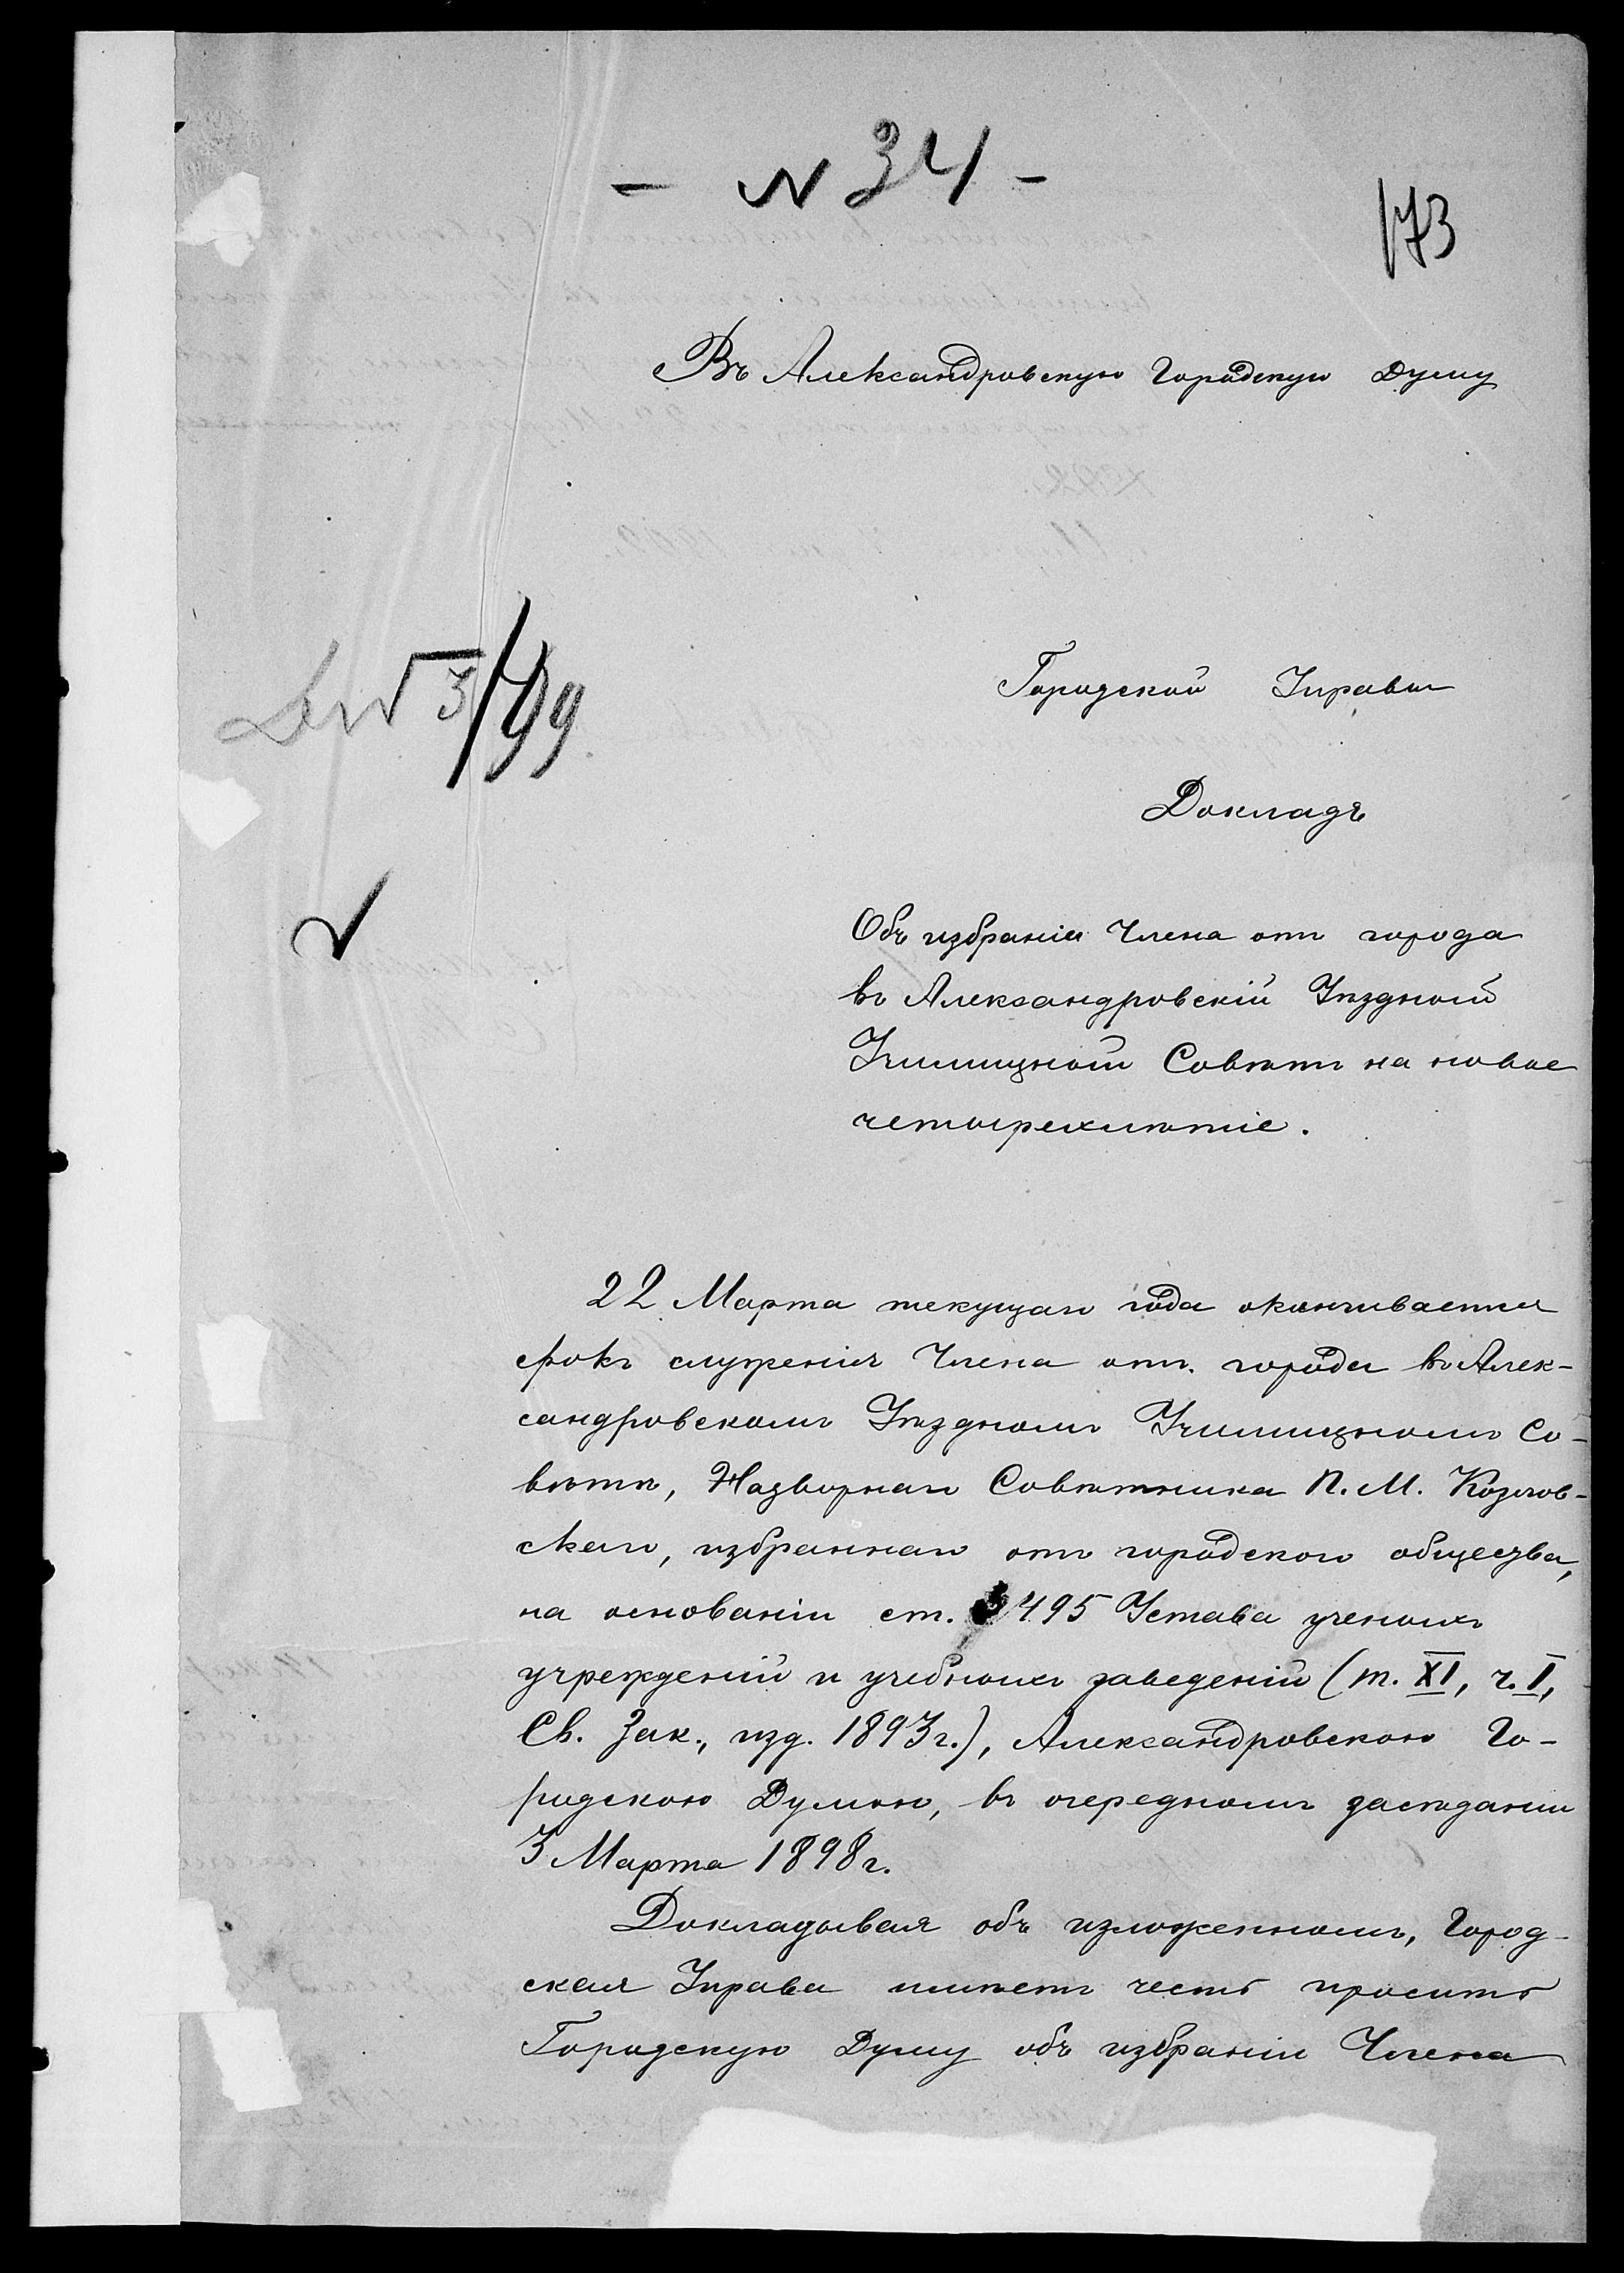 - № 34 -
173
Въ Александровскую Городскую Думу
Городской Управы
Докладъ
Объ избраніи Члена отъ города
въ Александровскій Уѣздный
Училищный Совѣтъ на новое
четырехлѣтіе.
22 Марта текущаго года оканчивается
срокъ служенія Члена отъ города въ Алек-
сандровскомъ Уѣздномъ Училищномъ Со-
вѣтѣ, Надворнаго Совѣтника П. М. Козлов-
скаго, избраннаго отъ городского общества,
на основаніи ст. 3495 Устава ученыхъ
учрежденій и учебныхъ заведеній (т. XI, ч. I,
Св. Зак., изд. 1893 г.), Александровскою Го-
родскою Думою, въ очередномъ засѣданіи
3 Марта 1898 г.
Докладывая объ изложенномъ, Город-
ская Управа имѣетъ честь просить
Городскую Думу объ избраніи Члена